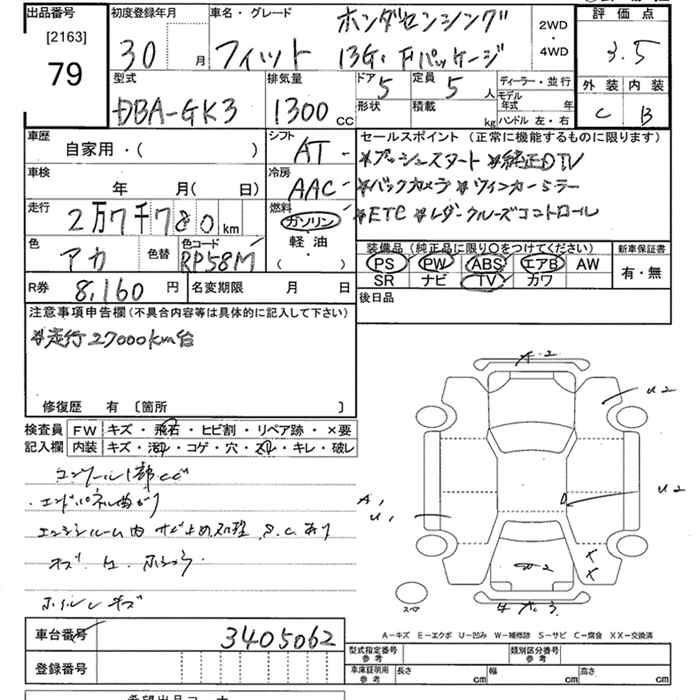 出品番号 初度登録年月 車名・グレード ホンダセンシング 2WD・4WD 評価点
[2163]
79 30 月 フィット 13G・Fパッケージ 3.5
型式 排気量 ドア 定員 ディーラー・並行 外装 内装
DBA-GK3 1300 CC 5 5 人 モデル年式 年 C B
形状 積載 kg ハンドル 左・右
車歴 シフト セールスポイント(正常に機能するものに限ります)
自家用・( ) AT
※プッシュスタート ※純正DTV
車検 冷房
年 月( 日) AAC
※バックカメラ ※ウインカーミラー
走行 燃料
2万7千780 km ガソリン
※ETC ※レーダークルーズコントロール
色 色替 色コード 軽油
アカ RP58M ( ・ )
装備品(純正品に限り〇をつけてください) 新車保証書
PS PW ABS エアB AW 有・無
SR ナビ TV カワ
R券 8,160 円 名変期限 月 日 後日品
注意事項申告欄(不具合内容等は具体的に記入して下さい)
※走行27000km台
修復歴 有 〔箇所 〕
検査員 FW キズ・飛石・ヒビ割・リペア跡・×要
記入欄 内装 キズ・汚れ・コゲ・穴・スレ・キレ・破レ
コンソール1部
エンドパネル曲がり
エンジンルーム内 サビ止め処理 S.C.あり
キズ
ホイルキズ
U2
U2
A1
U1
スペア
A-キズ E-エクボ U-凹み W-補修跡 S-サビ C-腐食 XX-交換済
車台番号 3405062
型式指定番号 参考 類別区分番号 参考
登録番号
車庫証明用 参考 長さ cm 幅 cm 高さ cm
希望出品コーナ